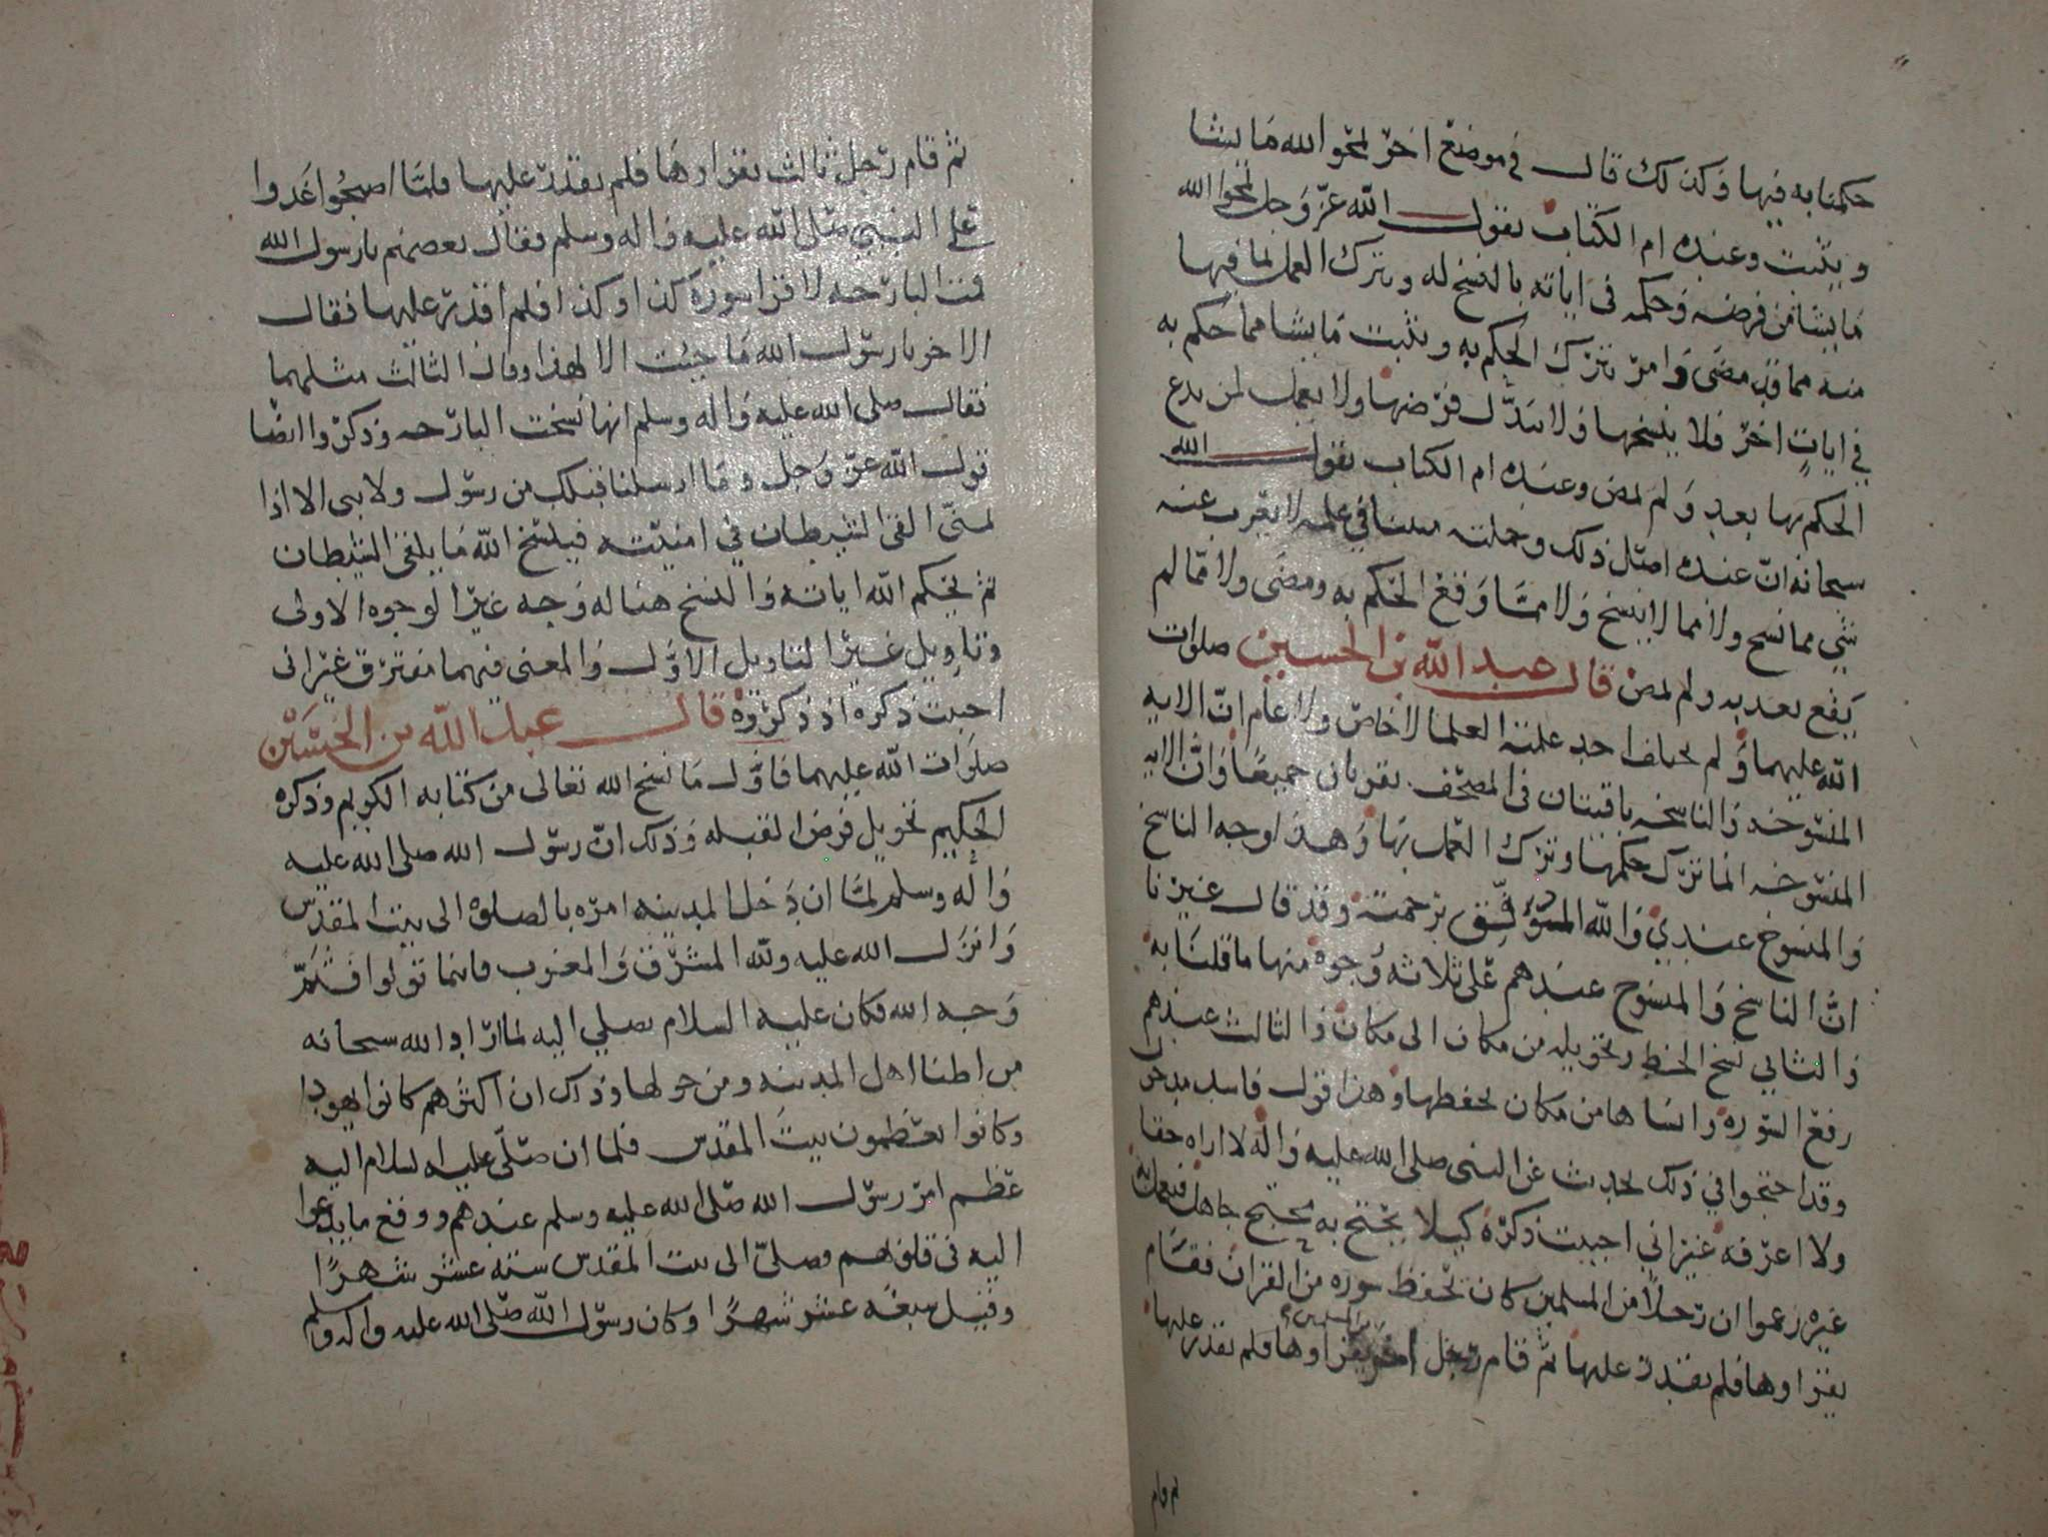 حكمنا به فيها وكذلك قال في موضع اخر يمحو الله ما يشا
ويثبت وعنده ام الكتاب يقول الله عز وجل يمحوا الله
ما يشا من فرضه وحكمه في اياته بالنسخ له وبترك العمل لما فيها
منه مما قد مضى وامر بترك الحكم به ويثبت ما يشا مما حكم به
في ايات اخر فلا ينسخها ولا يبدل فرضها ولا يعمل لمن يدع
الحكم بها بعد ولم يمض وعنده ام الكتاب يقول الله
سبحانه ان عنده اصل ذلك وجملته في علمه لا يعزب عنه
شي مما نسخ ولا مما لا ينسخ ولا مما وقع الحكم به ومضى ولا مما لم
يقع بعد به ولم يمض قال عبد الله بن الحسين صلوات
الله عليهما ولم يخالف احد علمته العلما لا خاص ولا عام ان الايه
المنسوخه والناسخه باقيتان في المصحف يقريان جميعا وان الايه
المنسوخه انما ترك حكمها وترك العمل بها وهذا وجه الناسخ
والمنسوخ عندي والله الموفق برحمته وقد قال غيرنا
ان الناسخ والمنسوخ عندهم على ثلاثه وجوه منها ما قلنا به
والثاني نسخ الخط وتحويله من مكان الى مكان والثالث عندهم
رفع السوره وانساها من مكان يحفظها وهذا قول فاسد مدخول
وقد احتجوا في ذلك بحديث عن النبى صلى الله عليه واله لا اراه حقا
ولا اعرفه غير اني احببت ذكره كيلا يحتج به محتج جاهل فيعمل به
غيره زعموا ان رجلا من المسلمين كان يحفظ سوره من القران فقام
يقراوها فلم يقدر عليها ثم قام رجل اخر يقراوها فلم يقدر عليها
ثم قام
ثم قام رجل ثالث يقراوها فلم يقدر عليها فلما اصبحوا غدوا
على النبي صلى الله عليه واله وسلم فقال بعضهم يا رسول الله
قمت البارحه لاقرا سوره كذا وكذا فلم اقدر عليها فقال
الاخر يا رسول الله ما جيت الا لهذا وقال الثالث مثلهما
فقال صلى الله عليه واله وسلم انها نسخت البارحه وذكروا ايضا
قول الله عز وجل وما ارسلنا قبلك من رسول ولا نبى الا اذا
تمنى القى الشيطان في امنيته فينسخ الله ما يلقى الشيطان
ثم يحكم الله اياته والنسخ هنا له وجه غير الوجوه الاولى
وتاويل غير التاويل الاول والمعنى فيهما مفترق غير انى
احببت ذكره اذ ذكروه قال عبد الله بن الحسين
صلوات الله عليهما فاول ما نسخ الله تعالى من كتابه الكريم وذكره
الحكيم تحويل فرض القبله وذلك ان رسول الله صلى الله عليه
واله وسلم لما ان دخل المدينه امره بالصلوة الى بيت المقدس
وانزل الله عليه ولله المشرق والمغرب فاينما تولوا فثم
وجه الله فكان عليه السلام يصلي اليه لما اراد الله سبحانه
من اطفا اهل المدينه ومن حولها وذلك ان اكثرهم كانوا يهودا
وكانوا يعظمون بيت المقدس فلما ان صلى عليه السلام اليه
عظم امر رسول الله صلى الله عليه وسلم عندهم ووقع ما يدعوا
اليه في قلوبهم وصلى الى بيت المقدس سته عشر شهرا
وقيل سبعه عشر شهرا وكان رسول الله صلى الله عليه واله وسلم